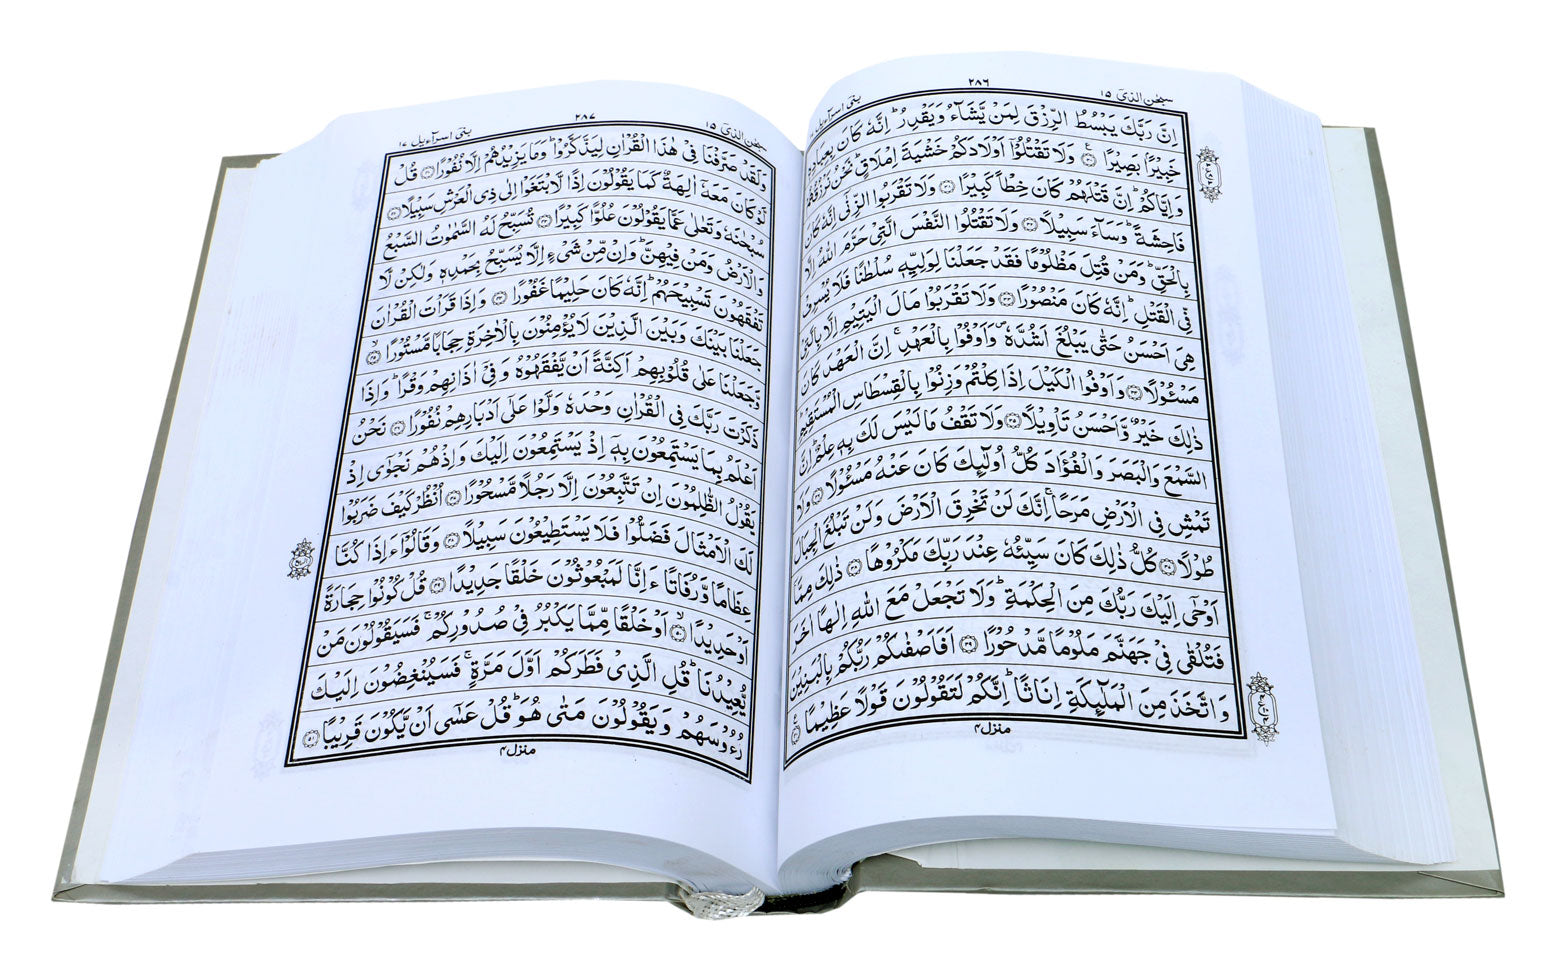 سبحٰن الذیٓ ۱۵ ۲۸۶ بنیٓ اسرآءیل
اِنَّ رَبَّكَ يَبْسُطُ الرِّزْقَ لِمَنْ يَّشَآءُ وَيَقْدِرُ ؕ اِنَّهٗ كَانَ بِعِبَادِهٖ
خَبِيْرًۢا بَصِيْرًا ۝۳۰ ع وَلَا تَقْتُلُوْٓا اَوْلَادَكُمْ خَشْيَةَ اِمْلَاقٍ ؕ نَحْنُ نَرْزُقُهُمْ
وَاِيَّاكُمْ ؕ اِنَّ قَتْلَهُمْ كَانَ خِطْاً كَبِيْرًا ۝۳۱ وَلَا تَقْرَبُوا الزِّنٰٓى اِنَّهٗ كَانَ
فَاحِشَةً ؕ وَسَآءَ سَبِيْلًا ۝۳۲ وَلَا تَقْتُلُوا النَّفْسَ الَّتِيْ حَرَّمَ اللّٰهُ اِلَّا
بِالْحَقِّ ؕ وَمَنْ قُتِلَ مَظْلُوْمًا فَقَدْ جَعَلْنَا لِوَلِيِّهٖ سُلْطٰنًا فَلَا يُسْرِفْ
فِّي الْقَتْلِ ؕ اِنَّهٗ كَانَ مَنْصُوْرًا ۝۳۳ وَلَا تَقْرَبُوْا مَالَ الْيَتِيْمِ اِلَّا بِالَّتِيْ
هِيَ اَحْسَنُ حَتّٰى يَبْلُغَ اَشُدَّهٗ ۪ وَاَوْفُوْا بِالْعَهْدِ ۚ اِنَّ الْعَهْدَ كَانَ
مَسْـُٔوْلًا ۝۳۴ وَاَوْفُوا الْكَيْلَ اِذَا كِلْتُمْ وَزِنُوْا بِالْقِسْطَاسِ الْمُسْتَقِيْمِ ؕ
ذٰلِكَ خَيْرٌ وَّاَحْسَنُ تَاْوِيْلًا ۝۳۵ وَلَا تَقْفُ مَا لَيْسَ لَكَ بِهٖ عِلْمٌ ؕ اِنَّ
السَّمْعَ وَالْبَصَرَ وَالْفُؤَادَ كُلُّ اُولٰٓئِكَ كَانَ عَنْهُ مَسْـُٔوْلًا ۝۳۶ وَلَا
تَمْشِ فِي الْاَرْضِ مَرَحًا ۚ اِنَّكَ لَنْ تَخْرِقَ الْاَرْضَ وَلَنْ تَبْلُغَ الْجِبَالَ
طُوْلًا ۝۳۷ كُلُّ ذٰلِكَ كَانَ سَيِّئُهٗ عِنْدَ رَبِّكَ مَكْرُوْهًا ۝۳۸ ذٰلِكَ مِمَّآ
اَوْحٰٓى اِلَيْكَ رَبُّكَ مِنَ الْحِكْمَةِ ؕ وَلَا تَجْعَلْ مَعَ اللّٰهِ اِلٰهًا اٰخَرَ
فَتُلْقٰى فِيْ جَهَنَّمَ مَلُوْمًا مَّدْحُوْرًا ۝۳۹ اَفَاَصْفٰىكُمْ رَبُّكُمْ بِالْبَنِيْنَ
وَاتَّخَذَ مِنَ الْمَلٰٓئِكَةِ اِنَاثًا ؕ اِنَّكُمْ لَتَقُوْلُوْنَ قَوْلًا عَظِيْمًا ۝۴۰ ع
منزل ۴
سبحٰن الذیٓ ۱۵ ۲۸۷ بنیٓ اسرآءیل ۱۷
وَلَقَدْ صَرَّفْنَا فِيْ هٰذَا الْقُرْاٰنِ لِيَذَّكَّرُوْا ؕ وَمَا يَزِيْدُهُمْ اِلَّا نُفُوْرًا ۝۴۱ قُلْ
لَّوْ كَانَ مَعَهٗٓ اٰلِهَةٌ كَمَا يَقُوْلُوْنَ اِذًا لَّابْتَغَوْا اِلٰى ذِي الْعَرْشِ سَبِيْلًا ۝۴۲
سُبْحٰنَهٗ وَتَعٰلٰى عَمَّا يَقُوْلُوْنَ عُلُوًّا كَبِيْرًا ۝۴۳ تُسَبِّحُ لَهُ السَّمٰوٰتُ السَّبْعُ
وَالْاَرْضُ وَمَنْ فِيْهِنَّ ؕ وَاِنْ مِّنْ شَيْءٍ اِلَّا يُسَبِّحُ بِحَمْدِهٖ وَلٰكِنْ لَّا
تَفْقَهُوْنَ تَسْبِيْحَهُمْ ؕ اِنَّهٗ كَانَ حَلِيْمًا غَفُوْرًا ۝۴۴ وَاِذَا قَرَاْتَ الْقُرْاٰنَ
جَعَلْنَا بَيْنَكَ وَبَيْنَ الَّذِيْنَ لَا يُؤْمِنُوْنَ بِالْاٰخِرَةِ حِجَابًا مَّسْتُوْرًا ۝۴۵ ۙ
وَّجَعَلْنَا عَلٰى قُلُوْبِهِمْ اَكِنَّةً اَنْ يَّفْقَهُوْهُ وَفِيْٓ اٰذَانِهِمْ وَقْرًا ؕ وَاِذَا
ذَكَرْتَ رَبَّكَ فِي الْقُرْاٰنِ وَحْدَهٗ وَلَّوْا عَلٰٓى اَدْبَارِهِمْ نُفُوْرًا ۝۴۶ نَحْنُ
اَعْلَمُ بِمَا يَسْتَمِعُوْنَ بِهٖٓ اِذْ يَسْتَمِعُوْنَ اِلَيْكَ وَاِذْ هُمْ نَجْوٰٓى اِذْ
يَقُوْلُ الظّٰلِمُوْنَ اِنْ تَتَّبِعُوْنَ اِلَّا رَجُلًا مَّسْحُوْرًا ۝۴۷ اُنْظُرْ كَيْفَ ضَرَبُوْا
لَكَ الْاَمْثَالَ فَضَلُّوْا فَلَا يَسْتَطِيْعُوْنَ سَبِيْلًا ۝۴۸ وَقَالُوْٓا ءَاِذَا كُنَّا
عِظَامًا وَّرُفَاتًا ءَاِنَّا لَمَبْعُوْثُوْنَ خَلْقًا جَدِيْدًا ۝۴۹ قُلْ كُوْنُوْا حِجَارَةً
اَوْ حَدِيْدًا ۝۵۰ ۙ اَوْ خَلْقًا مِّمَّا يَكْبُرُ فِيْ صُدُوْرِكُمْ ۚ فَسَيَقُوْلُوْنَ مَنْ
يُّعِيْدُنَا ؕ قُلِ الَّذِيْ فَطَرَكُمْ اَوَّلَ مَرَّةٍ ۚ فَسَيُنْغِضُوْنَ اِلَيْكَ
رُءُوْسَهُمْ وَيَقُوْلُوْنَ مَتٰى هُوَ ؕ قُلْ عَسٰٓى اَنْ يَّكُوْنَ قَرِيْبًا ۝۵۱
منزل ۴